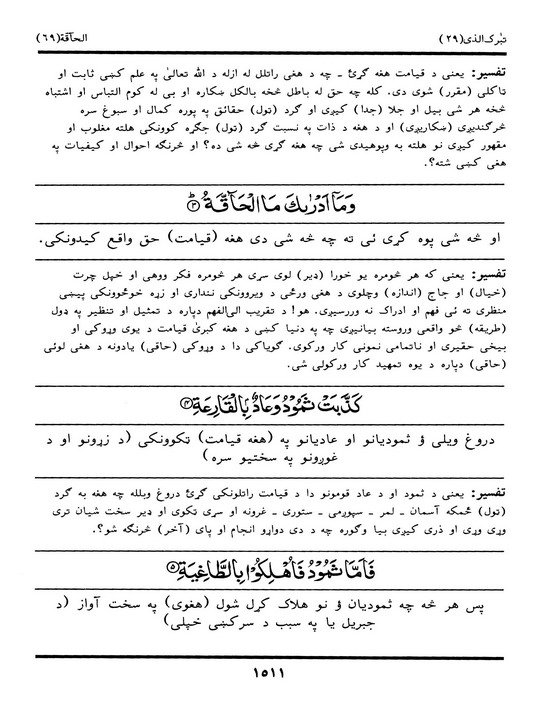 تبٰرک الذی(۲۹)
الحآقة(۶۹)
تفسیر: یعنی د قیامت هغه گړۍ ـ چه د هغې راتلل له ازله د الله تعالیٰ په علم کښې ثابت او
تاکلی (مقرر) شوی دی. کله چه حق له باطل څخه بالکل ښکاره او بې له کوم التباس او اشتباه
څخه هر شی بیل او جلا (جدا) کیږی او گرد (ټول) حقائق په پوره کمال او سبوغ سره
څرگندیږی (ښکاریږی) او د هغه د ذات په نسبت گرد (ټول) جگړه کوونکی هلته مغلوب او
مقهور کیږی نو هلته به وپوهیدی شی چه هغه گړۍ څه شی ده؟ او څرنگه احوال او کیفیات په
هغې کښې شته؟.
وَمَآ اَدْرٰىكَ مَا الْحَآقَّةُ ۳
او څه شی پوه کړی ئی ته چه څه شی دی هغه (قیامت) حق واقع کیدونکی.
تفسیر: یعنی که هر څومره یو خورا (ډیر) لوی سړی هر څومره فکر ووهی او خپل چرت
(خیال) او جاج (اندازه) وچلوی د هغې ورځې د ویروونکی ننداری او زړه خوځوونکی پیښې
منظری ته ئی فهم او ادراک نه وررسیږی. هو! د تقریب الی‌الفهم دپاره د تمثیل او تنظیر په ډول
(طریقه) څو واقعی وروسته بیانیږی چه په دنیا کښې د هغه کبریٰ قیامت د یوی وړوکی او
بیخی حقیری او ناتمامی نمونی کار ورکوی. گویاکی دا د وړوکی (حاقې) یادونه د هغې لوئی
(حاقې) دپاره د یوه تمهید کار ورکولی شی.
كَذَّبَتْ ثَمُوْدُ وَعَادٌۢ بِالْقَارِعَةِ ۴
دروغ ویلی ؤ ثمودیانو او عادیانو په (هغه قیامت) ټکوونکی (د زړونو او د
غوږونو په سختیو سره)
تفسیر: یعنی د ثمود او د عاد قومونو دا د قیامت راتلونکی گړۍ دروغ وبلله چه هغه به گرد
(ټول) ځمکه آسمان ـ لمر ـ سپوږمی ـ ستوری ـ غرونه او سړی ټکوی او ډیر سخت شیان تری
وړی وړی او ذری کیږی بیا وگوره چه د دی دواړو انجام او پای (آخر) څرنگه شو؟.
فَاَمَّا ثَمُوْدُ فَاُهْلِكُوْا بِالطَّاغِيَةِ ۵
پس هر څه چه ثمودیان ؤ نو هلاک کړل شول (هغوی) په سخت آواز (د
جبریل یا په سبب د سرکښی خپلی)
۱۵۱۱